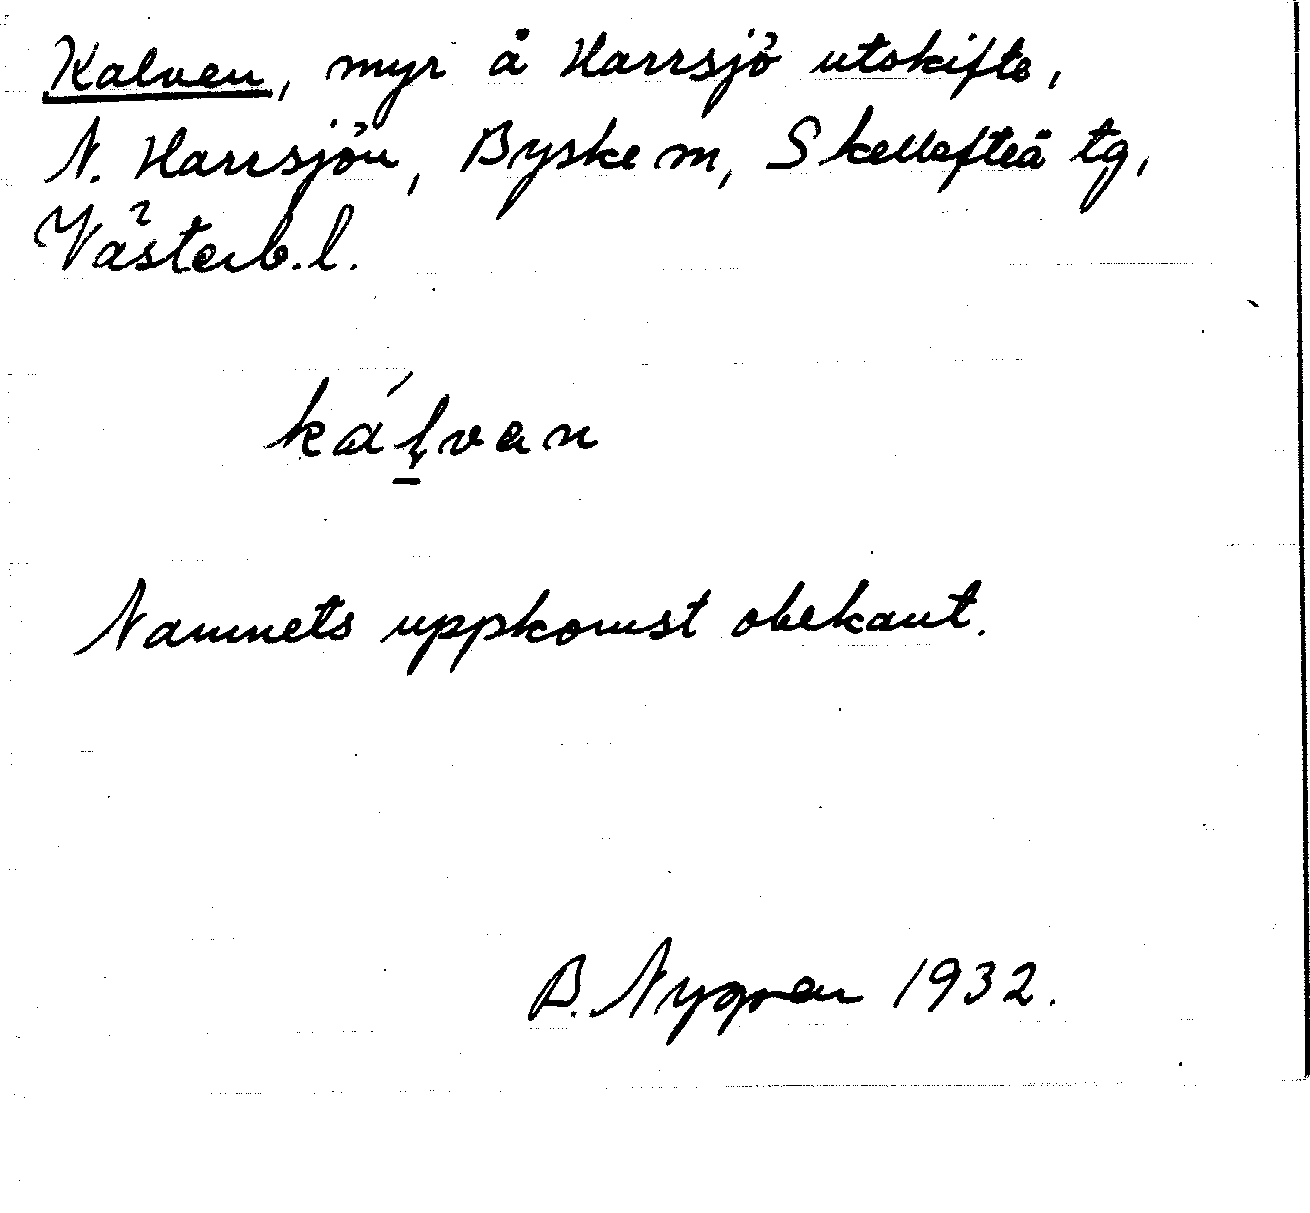 Kalven, myr å Harrsjö utskifte,
N. Harrsjön, Byske m, Skellefteå tg,
Västerb. l.
káḻvan
Namnets uppkomst obekant.
B. Nygren 1932.